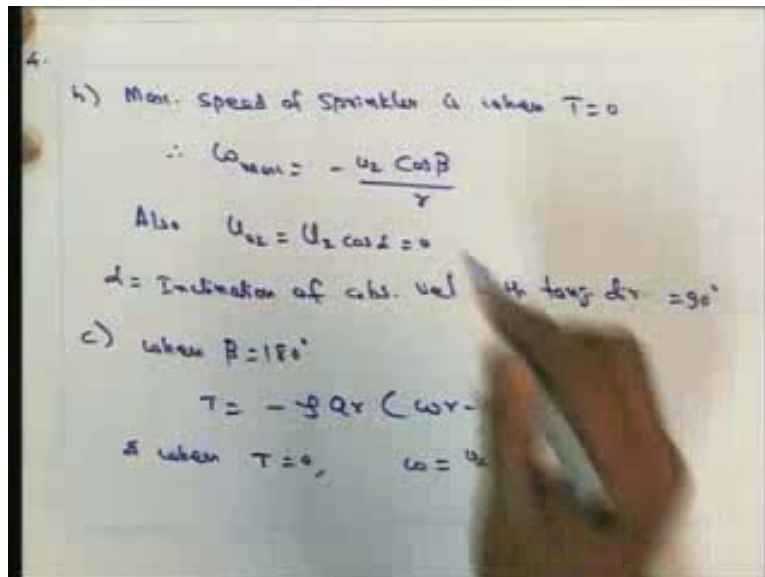 4.
b) Max. speed of sprinkler is when T = 0
∴ ω max = - u₂ cos β / r
Also U u₂ = U₂ cos α = 0
α = Inclination of abs. vel tang dir = 90°
c) when β = 180°
T = - ρ Q r ( ωr -
& when T = 0, ω = u₂